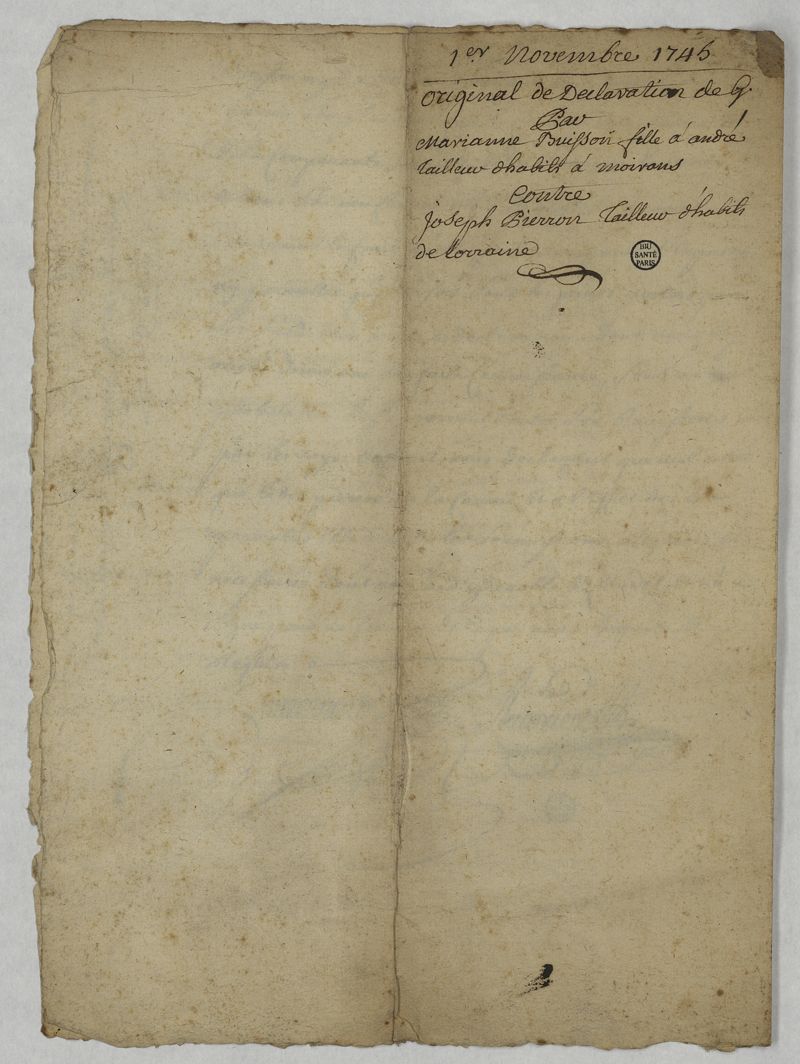 1er Novembre 1745
original de Declaration de G.
Par
Marianne Buisson fille á andré
Tailleur dhabits á moirans
Contre
joseph Pierron Tailleur d'habits
de Lorraine
BIU
SANTÉ
PARIS